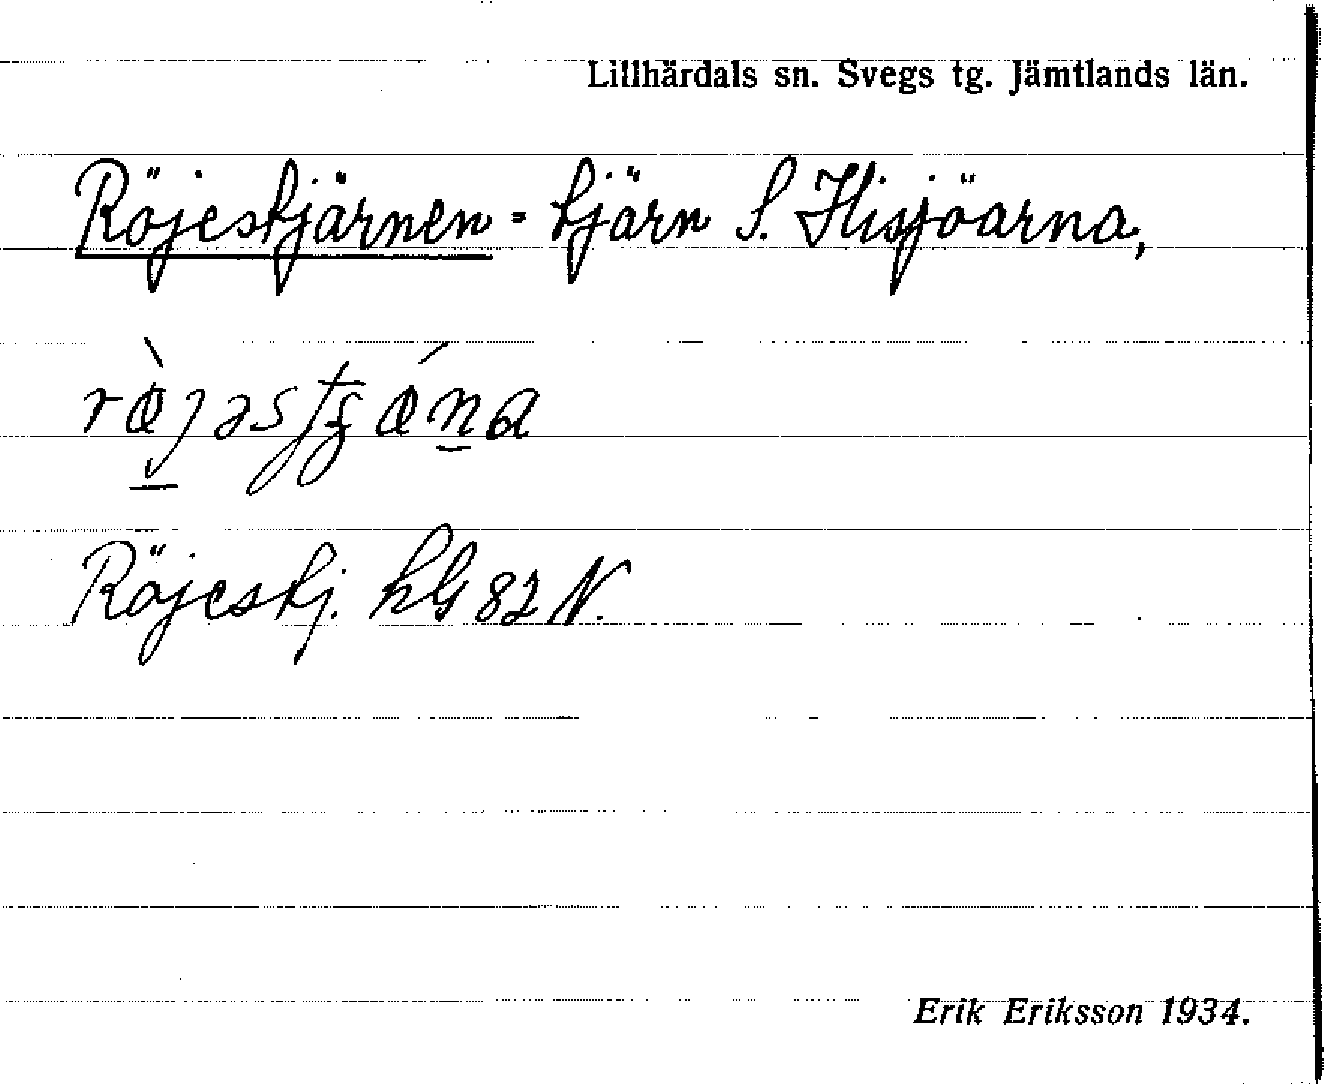 Lillhärdals sn. Svegs tg. Jämtlands län.
Röjestjärnen = tjärn S. Hisjöarna,
Röjestj. hG 82 N.
Erik Eriksson 1934.